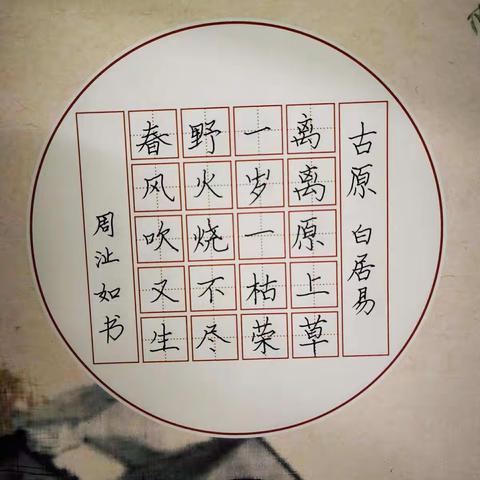 古原 白居易
离离原上草
一岁一枯荣
野火烧不尽
春风吹又生
周沚如书